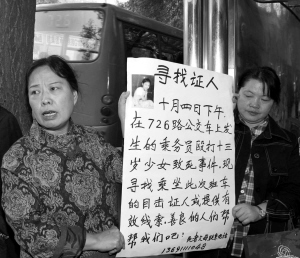 寻找证人
十月四日下午
在726路公交车上发
生的乘务员殴打十三
岁少女致死事件，现
寻找乘坐此次班车
的目击证人或提供有
效线索，善良的人们帮
帮我们吧！